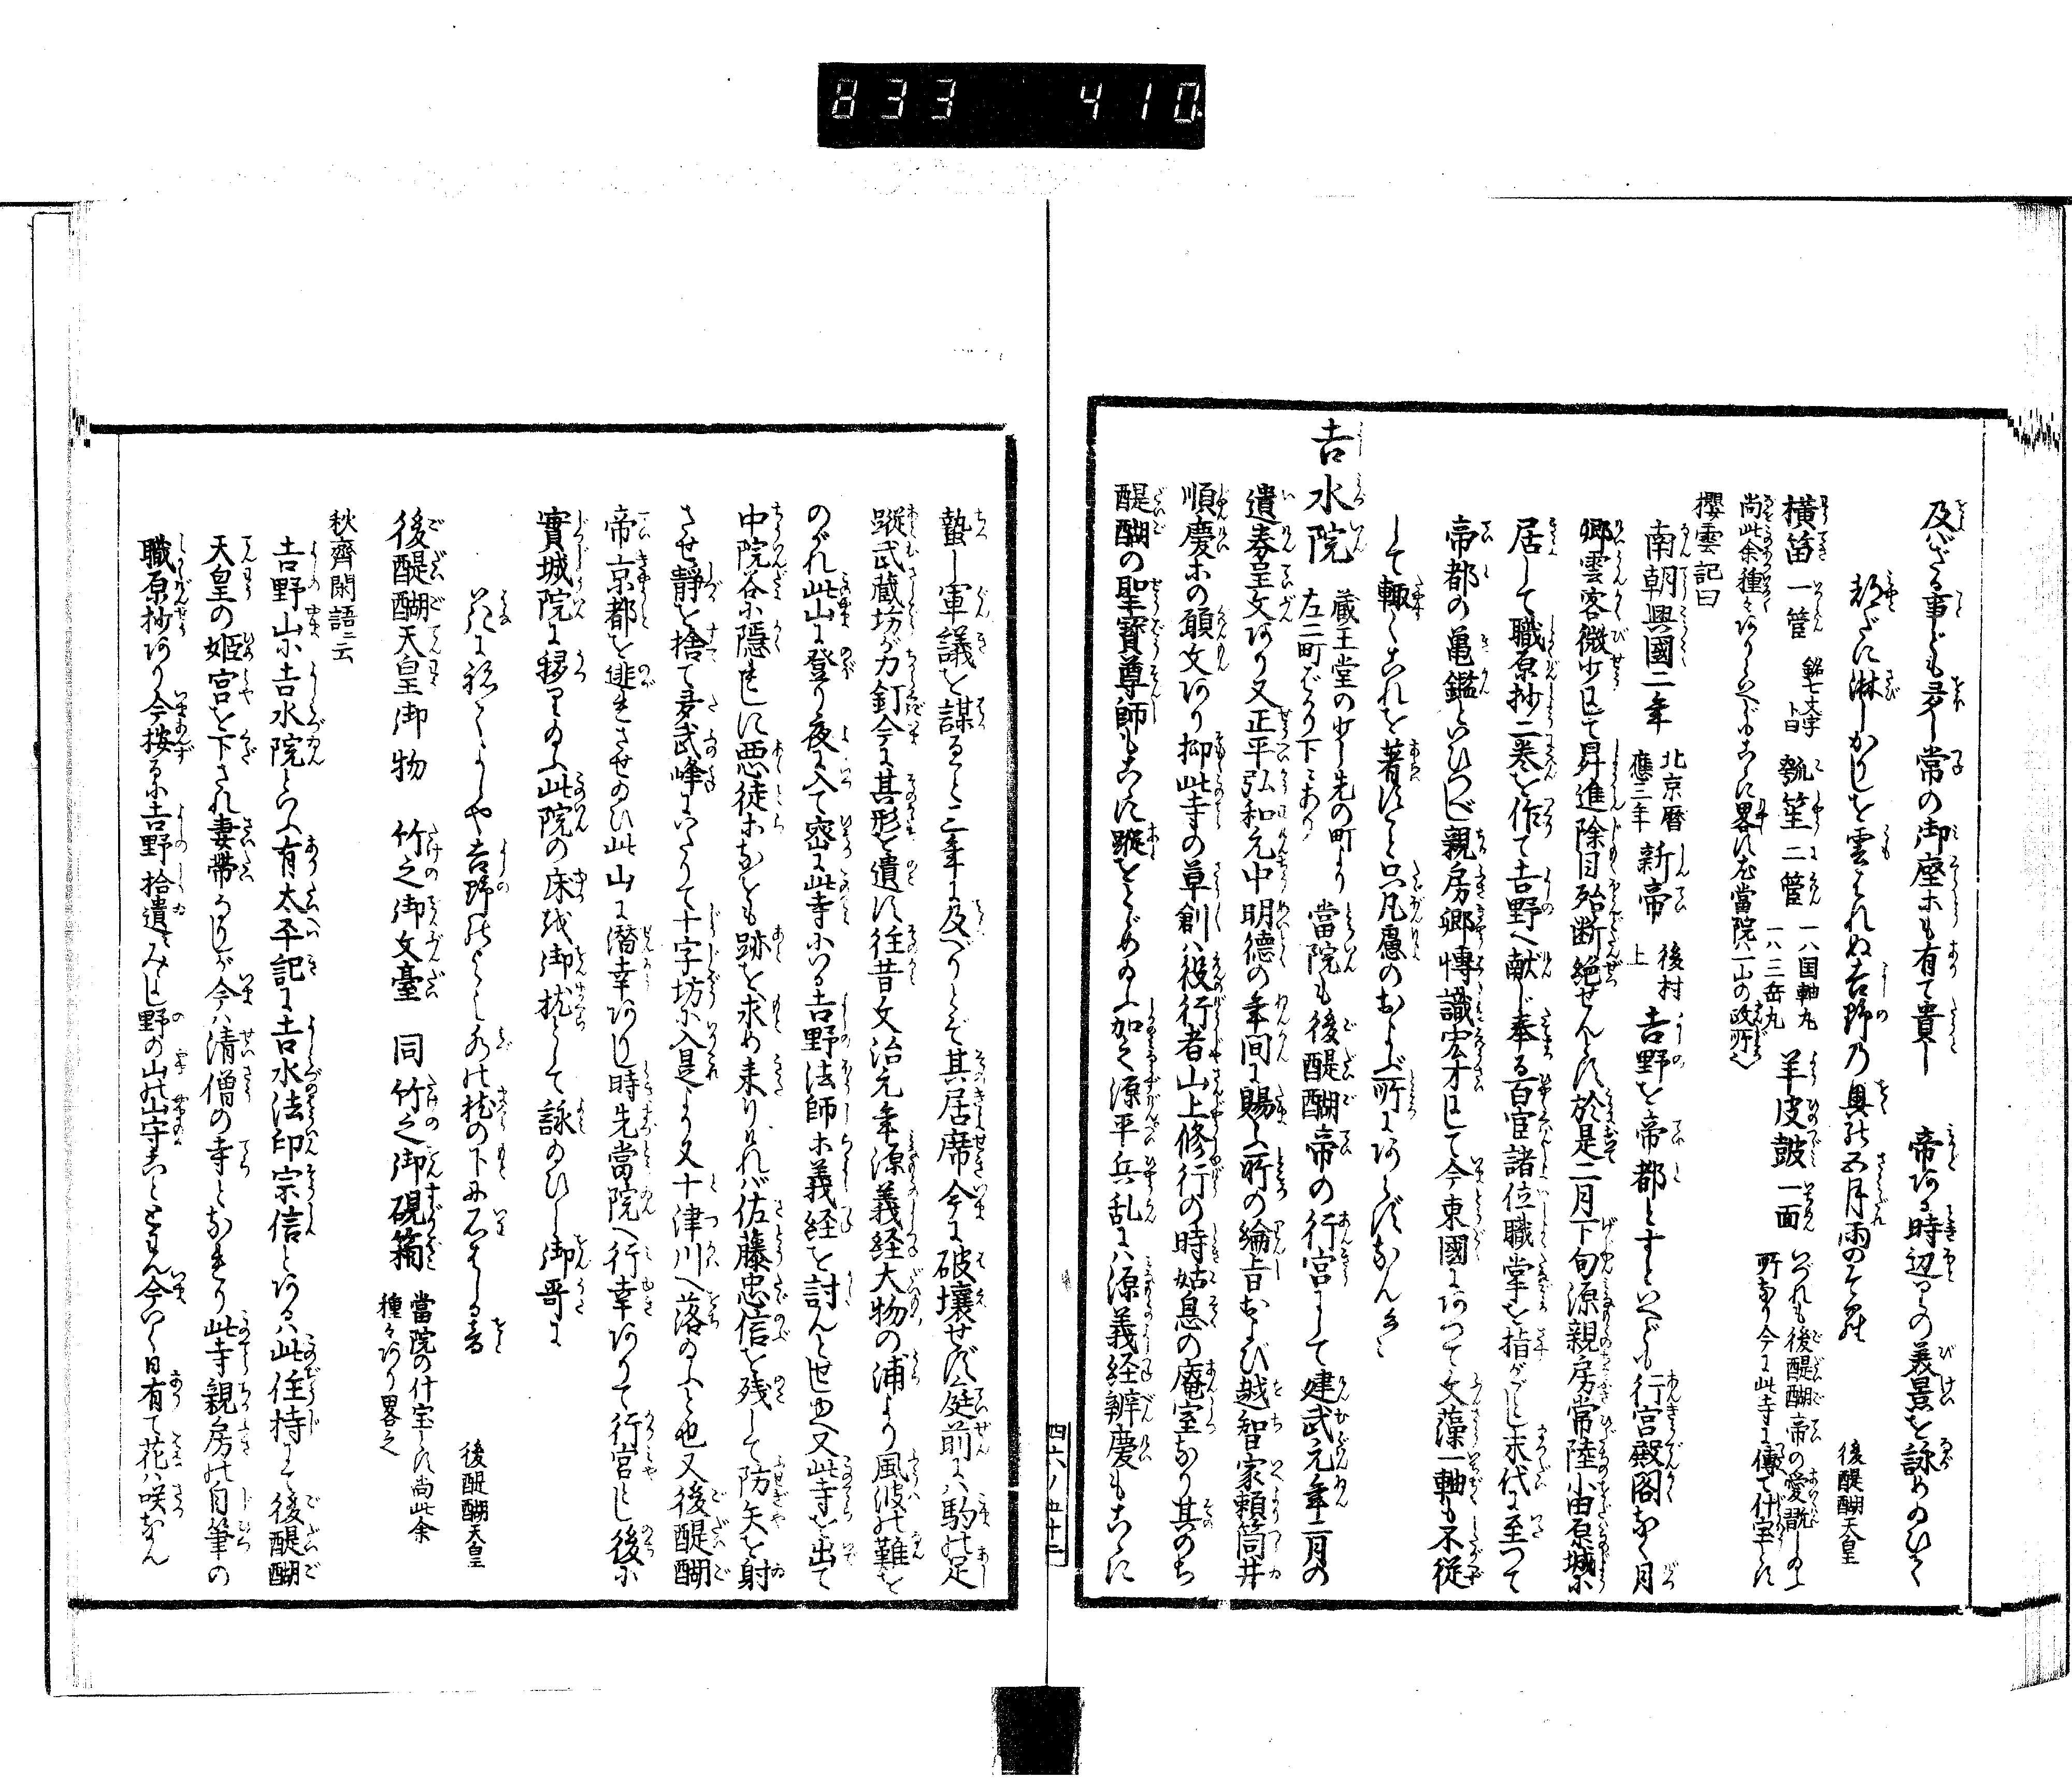 833 410
及バざる事ども多し常の御座ホも有て貴し 帝ある時辺りの美景を詠めのひて
都だに淋しかりしを雲はれぬ吉野乃奥の五月雨のそら 後醍醐天皇
横笛一管 瓠笙二管 一ハ国軸丸 一ハ三岳丸 羊皮皷一面 いづれも後醍醐帝の愛翫しのふ所なり今に此寺に傳て什宝とす
尚此余種々ありといへどもこゝに畧す当院ハ一山の政所也
櫻雲記曰
南朝興國二年 北京暦應三年 新帝 後村上 吉野を帝都とすといへども行宮殿閣なく月
卿雲客微少にして昇進除目殆断絶せんとす於是二月下旬源親房常陸小田原城に
居して職原抄二巻を作て吉野へ献じ奉る百官諸位職掌を指がごとし末代に至つて
帝都の亀鑑といひつべし親房卿博識宏才にして今東國にあつて文藻一軸も不従
して輙くこれを著すこと只凡慮のおよぶ所にあらずなんん
吉水院 蔵王堂の少し先の町より左二町ばかり下にあり 當院も後醍醐帝の行宮にして建武元年二月の
遺奏呈文あり又正平弘和元中明徳の年間に賜ふ所の綸旨および越智家頼筒井
順慶ホの願文あり抑此寺の草創ハ役行者山上修行の時姑息の庵室なり其のち
醍醐の聖寳尊師もこゝに蹤をとゞめ給ふ加之源平兵乱にハ源義経辨慶もこゝに
四六ノ五十二
蟄し軍議を謀ること三年に及べりとぞ其居席今に破壊せず庭前にハ駒の足
蹤武蔵坊が力釘今に其形を遺す往昔文治元年源義経大物の浦より風波の難を
のがれ此山に登り夜に入て密に此寺にいる吉野法師ホ義経を討んと世出又此寺を出て
中院谷に隠れしに悪徒ホなをも跡を求め来りければ佐藤忠信を残して防矢を射
させ静を捨て多武峰にいたりて十字坊に入是より又十津川へ落のふと也又後醍醐
帝京都を遁れさせのひ此山に潜幸ありし時先當院へ行幸ありて行宮とし後に
實城院に移りのふ此院の床を御枕として詠のひし御哥に
花に寝てよしや吉野のよし水の枕の下に石はしる音 後醍醐天皇
後醍醐天皇御物 竹之御文臺 同竹之御硯箱 當院の什宝とす尚此余種々あり畧之
秋齊閑語ニ云
吉野山に吉水院といふ有太平記に吉水法印宗信とあるハ此住持にて後醍醐
天皇の姫宮を下され妻帯なりしが今ハ清僧の寺となれり此寺親房の自筆の
職原抄あり今按るに吉野拾遺にみよし野の山の山守こととはん今いく日有て花ハ咲なん